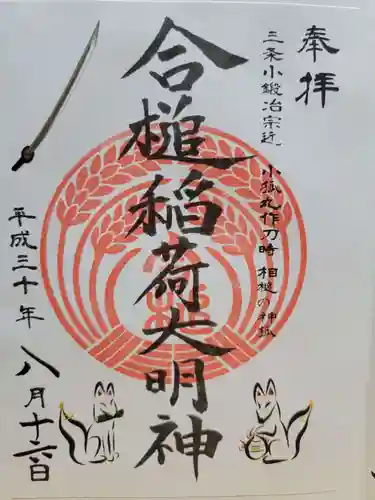 奉拝
三条小鍛冶宗近 小狐丸作刀時 相槌の神狐
合槌稲荷大明神
平成三十年 八月十六日